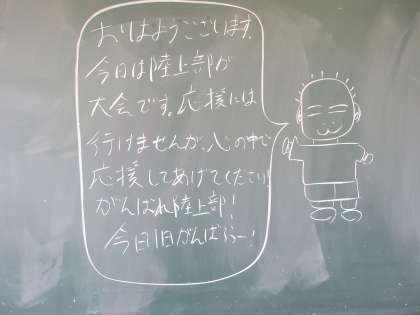 おはようございます。
今日は陸上部が
大会です。応援には
行けませんが、心の中で
応援してあげてください!
がんばれ陸上部!
今日1日がんばろー!